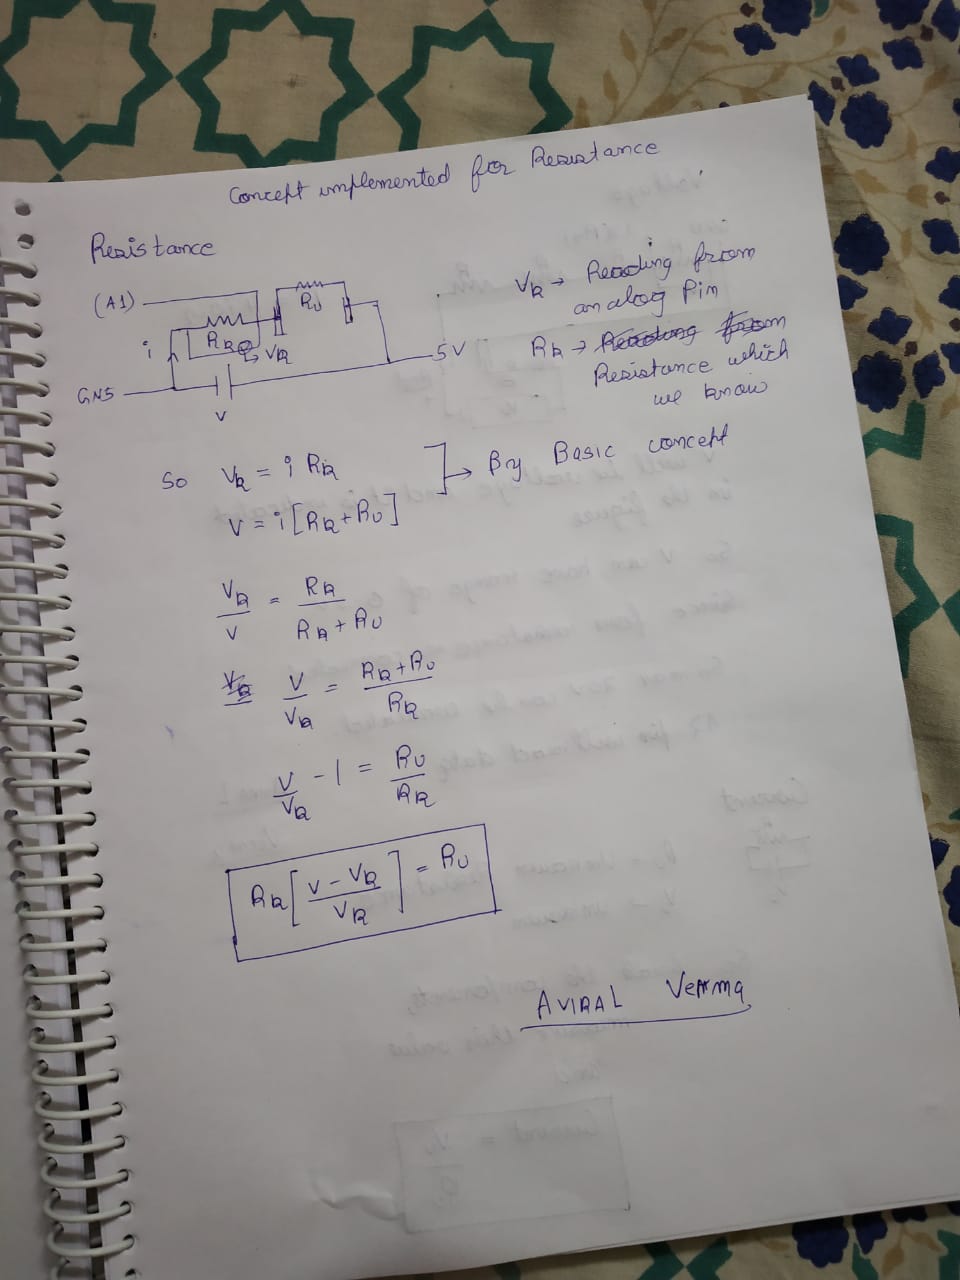 Concept implemented for Resistance
Resistance
(A1)
RU
RR
i
VR
5V
GN5
V
VR → Reading from
analog Pin
RR → Reading from
Resistance which
we know
So VR = i RR
V = i [RR + RU]
By Basic concept
VR / V = RR / RR + RU
VR V / VR = RR + RU / RR
V / VR - 1 = RU / RR
RR [ V - VR / VR ] = RU
AVIRAL Verma